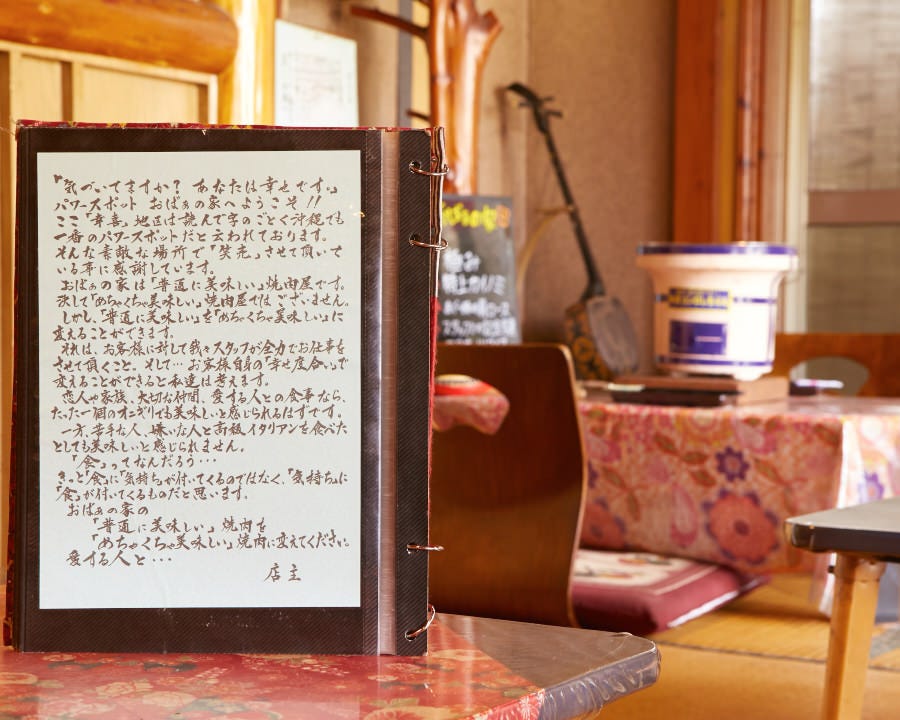 『気づいてますか？ あなたは幸せです。』
パワースポット おばぁの家へようこそ!!
ここ「幸喜」地区は読んで字のごとく沖縄でも
一番のパワースポットだと云われております。
そんな素敵な場所で「笑売」させて頂いて
いる事に感謝しています。
おばぁの家は「普通に美味しい」焼肉屋です。
決して「めちゃくちゃ美味しい」焼肉屋ではございません。
しかし、「普通に美味しい」を「めちゃくちゃ美味しい」に
変えることができます。
それは、お客様に対して我々スタッフが全力でお仕事を
させて頂くこと。そして…お客様自身の「幸せ度合い」で
変えることができると私達は考えます。
恋人や家族、大切な仲間、愛する人との食事なら、
たった一個のオニギリでも美味しいと感じられるはずです。
一方、苦手な人、嫌いな人と高級イタリアンを食べた
としても美味しいと感じられません。
「食」ってなんだろう…
きっと「食」に「気持ち」が付いてくるのではなく、「気持ち」に
「食」が付いてくるものだと思います。
おばぁの家の
「普通に美味しい」焼肉を
「めちゃくちゃ美味しい」焼肉に変えてください。
愛する人と…
店主